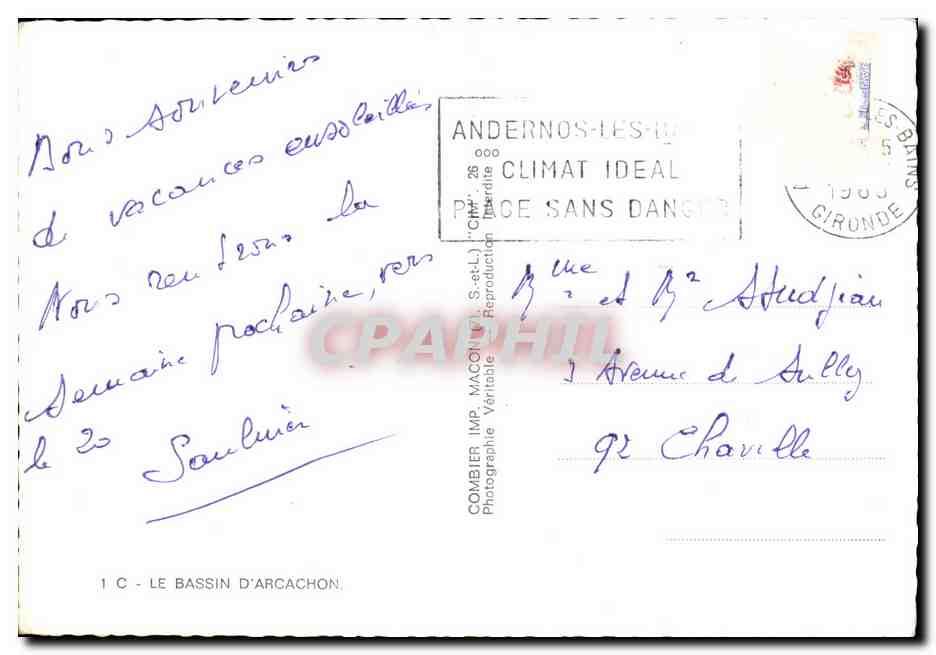 Bons souvenirs
de vacances ensoleillés
Nous rentrons la
semaine prochaine, vers
le 20
Saulnier
1 C - LE BASSIN D'ARCACHON.
COMBIER IMP. MACON (S.-et-L.) "CIM". 26
Photographie Véritable - Reproduction Interdite
ANDERNOS-LES-
ooo
CLIMAT IDEAL
PLAGE SANS DANGER
ES-BAINS
GIRONDE
Mme et Mr
3 Avenue de Sully
92 Chaville
CPAPHIL